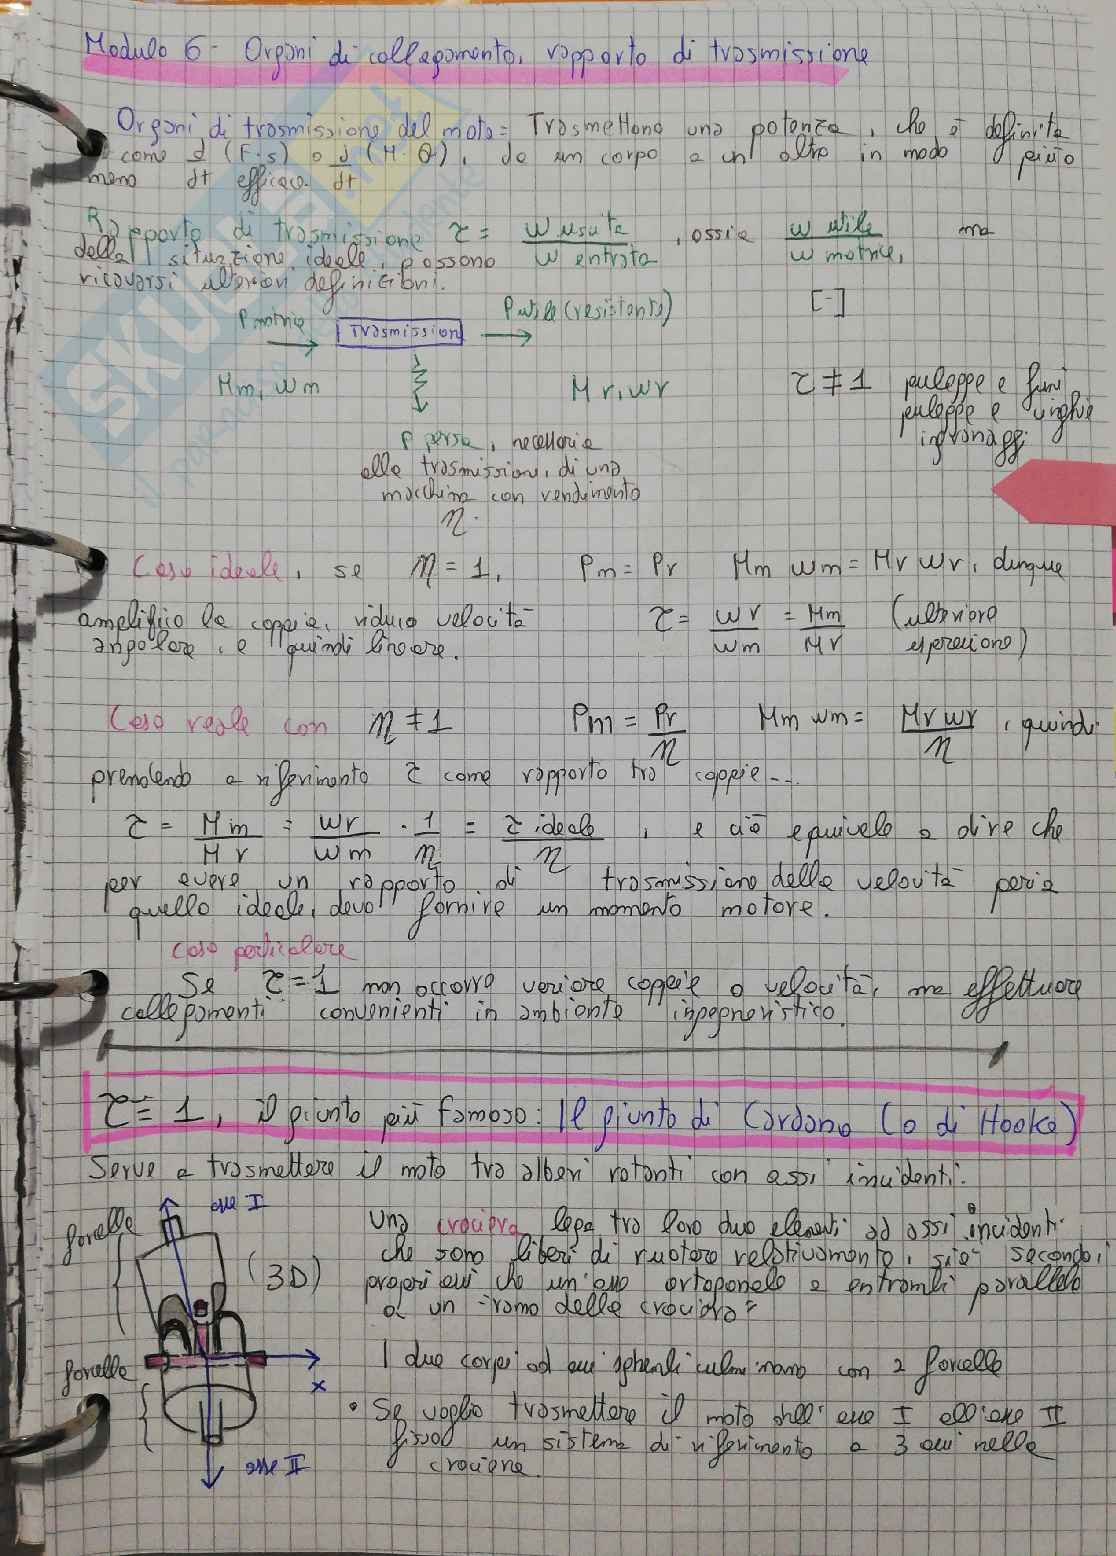 Modulo 6 - Organi di collegamento, rapporto di trasmissione
Organi di trasmissione del moto = Trasmettono una potenza, che è definita
come d/dt (F·s) o d/dt (M·θ), da un corpo a un altro in modo più o
meno efficace.
Rapporto di trasmissione τ = w uscita / w entrata, ossia w utile / w motrice, ma
dalla situazione ideale, possono
ricavarsi ulteriori definizioni.
[-]
P motrice
Trasmission
P utile (resistente)
Mm, wm
Mr, wr
τ ≠ 1 pulegge e funi
pulegge e cinghie
ingranaggi
P persa, necessaria
alla trasmissione, di una
macchina con rendimento
η.
Caso ideale, se η = 1, Pm = Pr Mm wm = Mr wr, dunque
amplifico la coppia, riduco velocità
angolare, e quindi lineare.
τ = wr / wm = Mm / Mr (ulteriore
espressione)
Caso reale con η ≠ 1 Pm = Pr / η Mm wm = Mr wr / η, quindi
prendendo a riferimento τ come rapporto tra coppie...
τ = Mm / Mr = wr / wm · 1 / η = τ ideale / η, e ciò equivale a dire che
per avere un rapporto di trasmissione delle velocità pari a
quello ideale, devo fornire un momento motore.
caso particolare
Se τ = 1 non occorre variare coppie o velocità, ma effettuare
collegamenti convenienti in ambiente ingegneristico.
τ = 1, il giunto più famoso: Il giunto di Cardano (o di Hooke)
Serve a trasmettere il moto tra alberi rotanti con assi incidenti.
forcella
asse I
(3D)
forcella
x
asse II
Una crociera lega tra loro due elementi ad assi incidenti
che sono liberi di ruotare relativamente, sia secondo i
propri assi che un asse ortogonale a entrambi parallelo
a un ramo della crociera
I due corpi ad assi culminano con 2 forcelle
• Se voglio trasmettere il moto dall'asse I all'asse II
fisso un sistema di riferimento a 3 assi nella
crociera.
SKUOLA.net
il paradiso dello studente